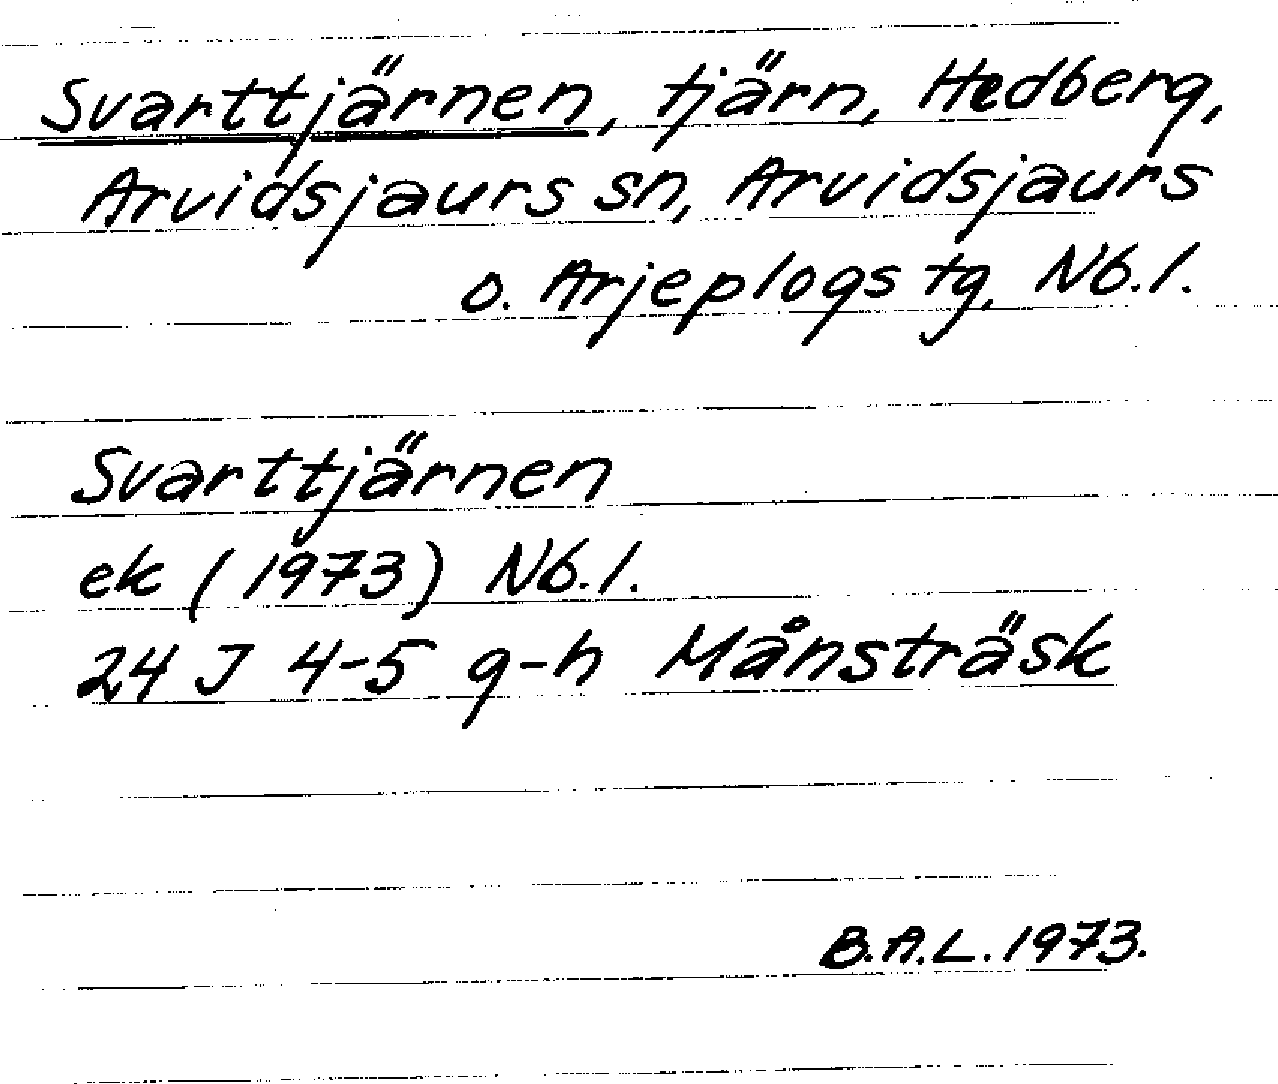 Svarttjärnen, tjärn, Hedberg,
Arvidsjaurs sn, Arvidsjaurs
o. Arjeplogs tg, Nb.l.
Svarttjärnen
ek (1973) Nb.l.
24 J 4-5 g-h Månsträsk
B.A.L. 1973.